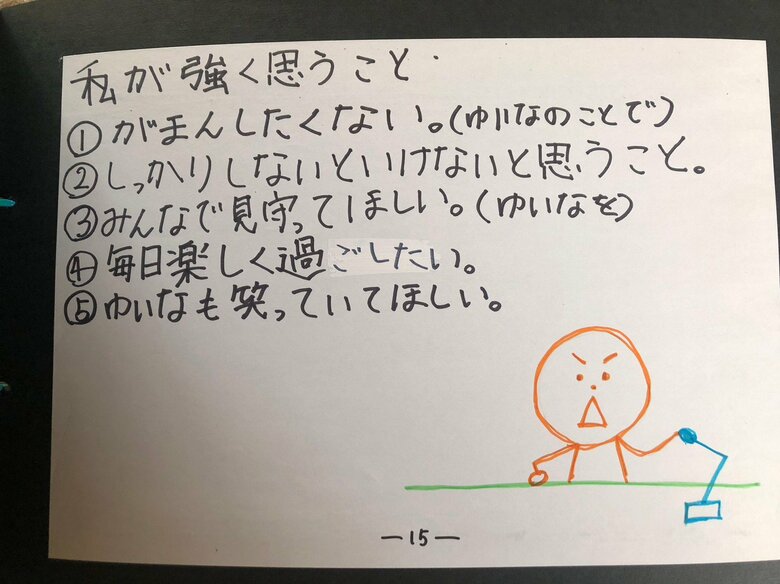 私が強く思うこと
①がまんしたくない。(ゆいなのことで)
②しっかりしないといけないと思うこと。
③みんなで見守ってほしい。(ゆいなを)
④毎日楽しく過ごしたい。
⑤ゆいなも笑っていてほしい。
—15—